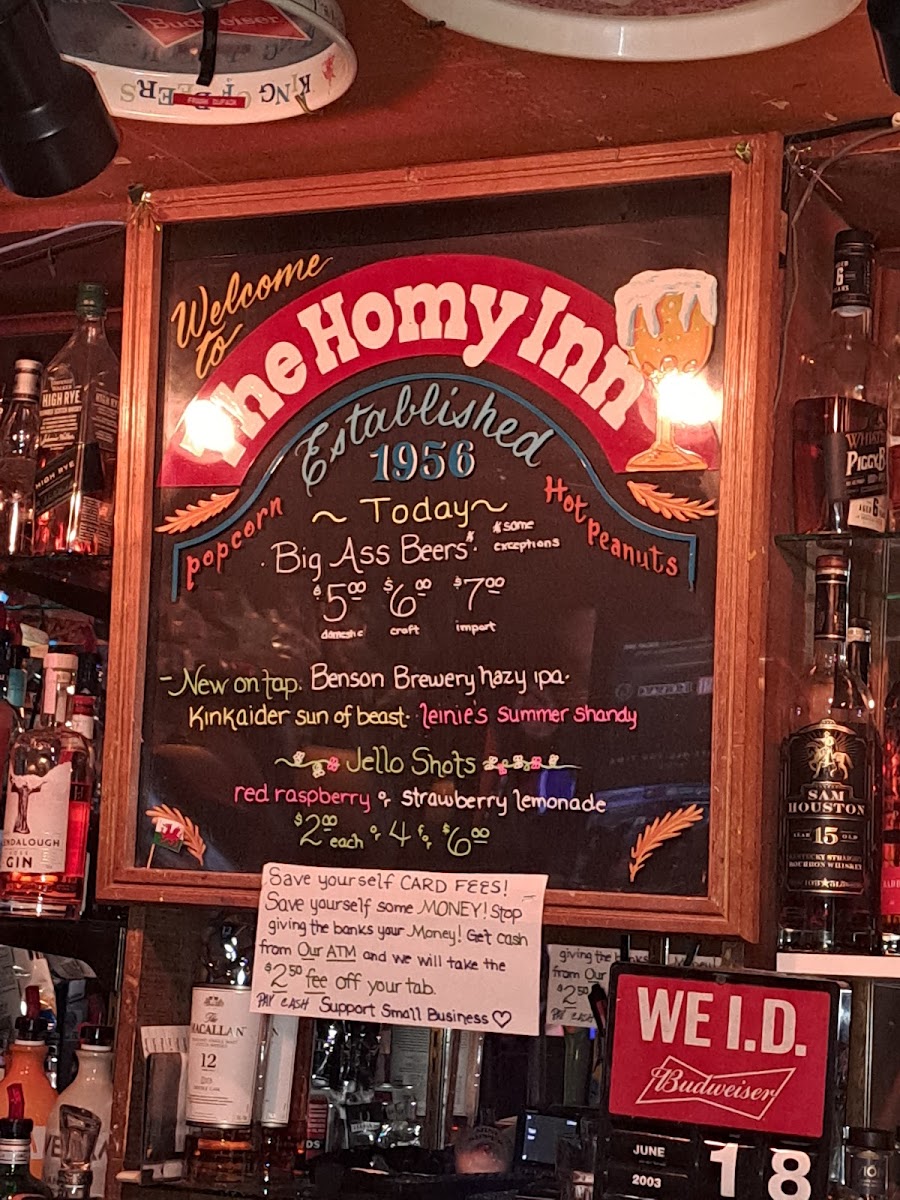 Budweiser
KING OF BEERS
Welcome
to
The Homy Inn
Established
1956
popcorn
Hot peanuts
~ Today ~
. Big Ass Beers* *some
exceptions
$5.00 $6.00 $7.00
domestic craft import
- New on tap: Benson Brewery hazy ipa.
Kinkaider sun of beast. Leinie's Summer Shandy
Jello Shots
red raspberry or strawberry lemonade
$2.00 each or 4 for $6.00
Save yourself CARD FEES!
Save yourself some MONEY! Stop
giving the banks your Money! Get cash
from Our ATM and we will take the
$2.50 fee off your tab.
PAY CASH Support Small Business♡
giving the banks
from Our
$2.50
PAY CASH
WE I.D.
Budweiser
JUNE
2003
18
HIGH RYE
HIGH RYE
GIN
The
MACALLAN
12
WHISTLE
PIGGYB
SAM
HOUSTON
YEAR 15 OLD
KENTUCKY STRAIGHT
BOURBON WHISKEY